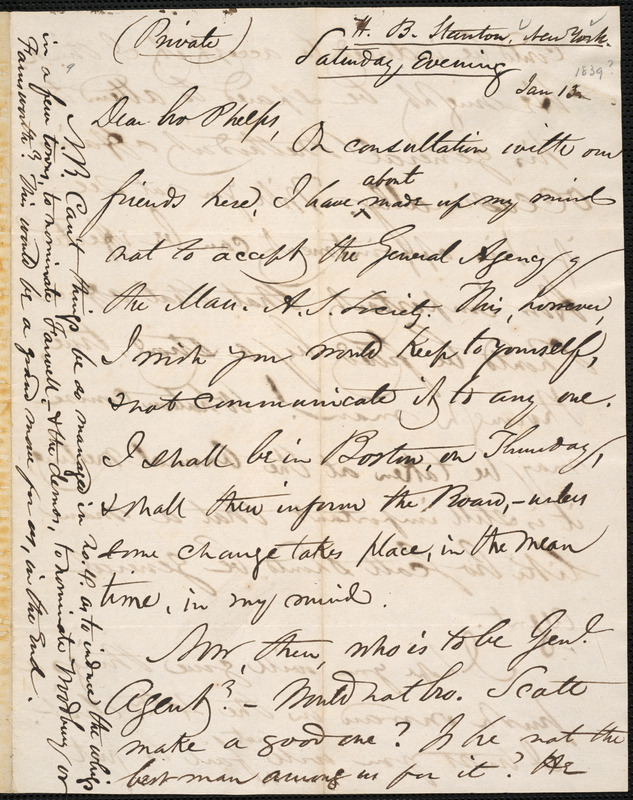 (Private)
H. B. Stanton, New York.
Saturday Evening
Jan 13
1839?
Dear bro Phelps,
On consultation with our
about
friends here, I have made up my mind
not to accept the General Agency of
the Mass. A. S. Society. This, however,
I wish you would keep to yourself,
& not communicate it to any one.
I shall be in Boston, on Thursday,
& shall then inform the Board, - unless
some change takes place, in the mean
time, in my mind.
Now, then, who is to be Genl.
Agent? - Would not bro. Scott
make a good one? Is he not the
best man among us for it? He
N.B. Can't things be so managed in No. 4. as to induce the whigs
in a few towns, to nominate Farwell - & the demos, to nominate Woodbury or
Farnsworth? This would be a grand move for us, in the end.